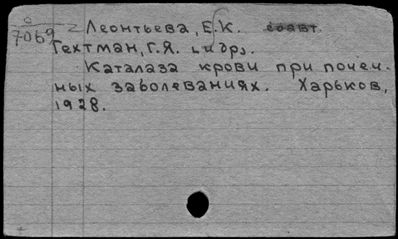 7069
Леонтьева, Е.К. соавт.
Гехтман, Г.Я. и др.
Каталаза крови при почеч-
ных заболеваниях. Харьков,
1928.